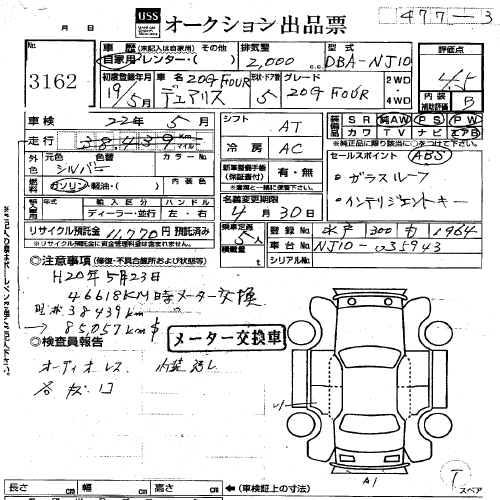 477-3
USS オークション出品票
月 日
3162
車歴 (未記入は自家用) その他
自家用 レンタカー・( )
排気量
2,000 c.c
型式
DBA-NJ10
評価点
4.5
内装
補助評価
B
初度登録年月
19/5月
車名 20G FOUR
デュアリス
形状・ドア数
5
グレード
20G FOUR
2WD
4WD
車検 22年 5月
走行 38,439 km マイル
シフト AT
冷房 AC
SR 純AW PS PW
カワ TV ナビ エアB
※純正品に限り該当するものに○をつけて下さい
外 元色 色替 カラーNo
シルバー
内装色
燃料 ガソリン 軽油・( )
輸入区分 ハンドル
ディーラー・並行 左・右
新車整備手帳
(保証書付)
有・無
セールスポイント ABS
・ガラスルーフ
・インテリジェントキー
名義変更期限
4月30日
リサイクル預託金 11,770円 預託済み
※リサイクル預託金に資金管理料金は含まれません
乗車定員 5人
積載量
登録 水戸 300 1964
車台No NJ10-035943
シリアルNo
◎注意事項 (修復・不具合箇所および状態等)
H20年5月23日
46618KM時メーター交換
38439km
85,057km
メーター交換車
◎検査員報告
オーディオレス
A1
T
スペア
長さ cm 幅 cm 高さ cm ←(車検証上の寸法)